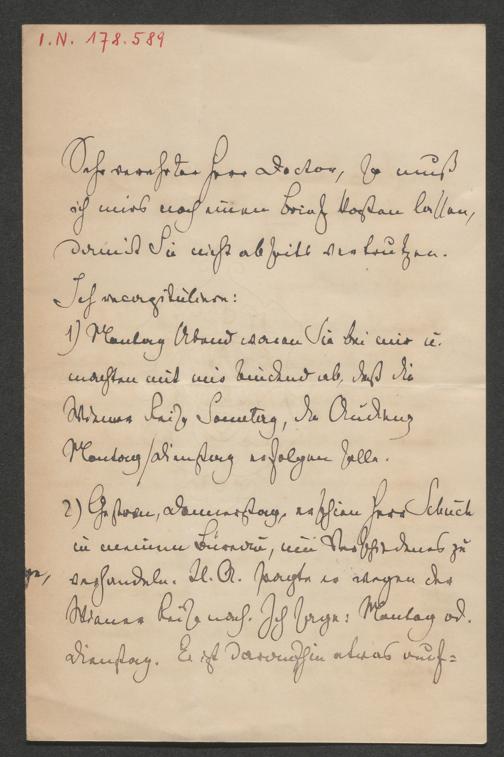 I.N. 178.589
Sehr verehrter Herr Doctor, so muß
ich mirs noch einen Brief kosten lassen,
damit Sie nicht abseits
Ich recapitulire:
1) Montag Abend waren Sie bei mir u.
machten mit mir bindend ab, daß die
Wiener Reise Sonntag, die Audienz
Montag/Dienstag erfolgen solle.
2) Gestern, Donnerstag, erschien Herr Schuch
in meinem Bureau, um Verschiedenes zu
verhandeln. U. A. fragte er wegen der
Wiener Reise nach. Ich sage: Montag od.
Dienstag. Er ist daraufhin etwas auf=